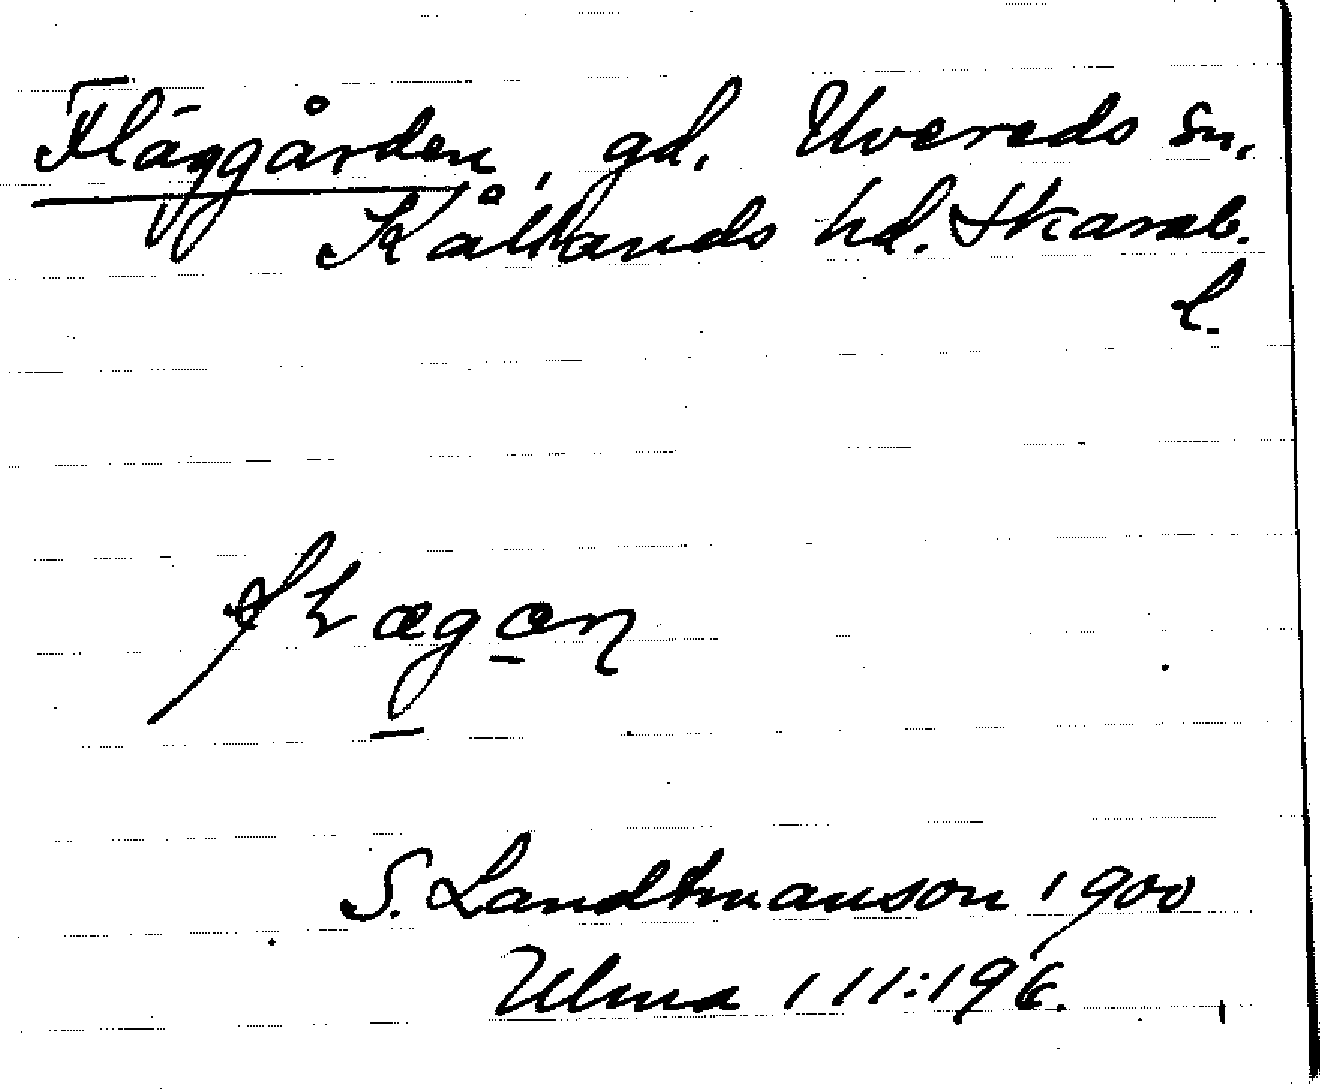 Fläggården, gd. Uvereds sn.
Kållands hd. Skarab.
l.
S. Landtmanson 1900
Ulma 111:196.